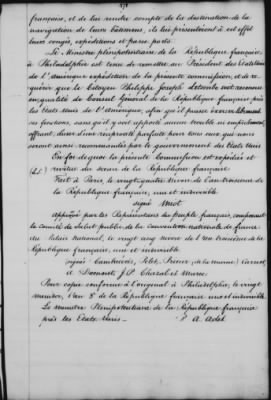 française, et de lui rendre compte de la destination de la
navigation de leurs bâtimens, ils lui présenteront à cet effet
leurs congés, expéditions et passe ports.
Le Ministre plénipotentiaire de la République française,
à Philadelphie est tenu de remettre au Président des Etats Unis
de l'amérique expédition de la présente commission, et de re-
quérir que le Citoyen Philippe Joseph Letombe soit reconnu
en qualité de Consul General de la République française près
les Etats Unis de l'amérique, afin qu'il puisse exercer librement
ses fonctions, sans qu'il y soit apporté aucun trouble ni empêchement,
offrant, d'user d'une réciprocité parfaite pour tous ceux qui nous
seront aussi recommandés par le gouvernement des Etats Unis
En foi de quoi la présente Commission est expédiée et
(L.S.) revêtue du sceau de la République française
Fait à Paris, le de l'an troisieme de
la République française, une et indivisible
signé Miot
approuvé par les Représentans du peuple français, composant
le Comité de Salut public de la Convention nationale de france
au Palais national, le vingt cinq de l'an troisieme de la
République française, une et indivisible
signés Cambacérès, Pelet, (de la marne) Carnot,
et J. P. Chazal et
Pour copie conforme à l'original à Philadelphie, le vingt
messidor, l'an 3e de la République française une et indivisible.
Le ministre Plénipotentiaire de la République française
près les Etats Unis P. A. Adet